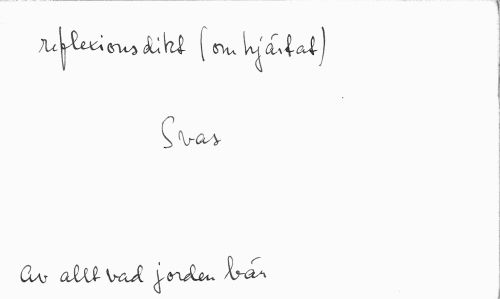 reflexionsdikt (om hjärtat)
Svas
Av allt vad jorden bär